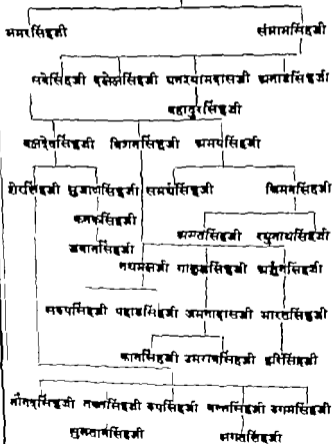 अमरसिंहजी संग्रामसिंहजी
नवेसिंहजी दलेलसिंहजी घनश्यामदासजी अनाडसिंहजी
बहादुरसिंहजी
बलदेवसिंहजी बिशनसिंहजी अभयसिंहजी
शेरसिंहजी सुजाणसिंहजी समर्थसिंहजी किसनसिंहजी
कनकसिंहजी भगतसिंहजी रघुनाथसिंहजी
जवानसिंहजी
नथमलजी गोकुलसिंहजी अर्जुनसिंहजी
सरूपसिंहजी पहाडसिंहजी जमनादासजी भारतसिंहजी
कानसिंहजी उमरावसिंहजी हरिसिंहजी
तखतसिंहजी रूपसिंहजी उगमसिंहजी
सुलतानसिंहजी जगतसिंहजी